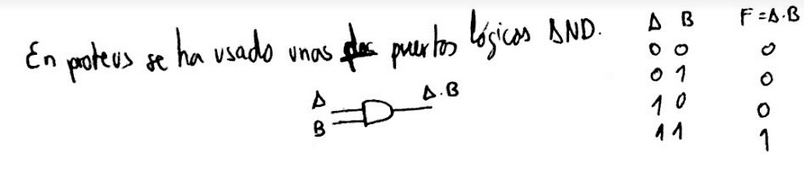 En proteus se ha usado unas puertos lógicas AND.
A B F = A.B
0 0 0
0 1 0
1 0 0
1 1 1
A A.B
B